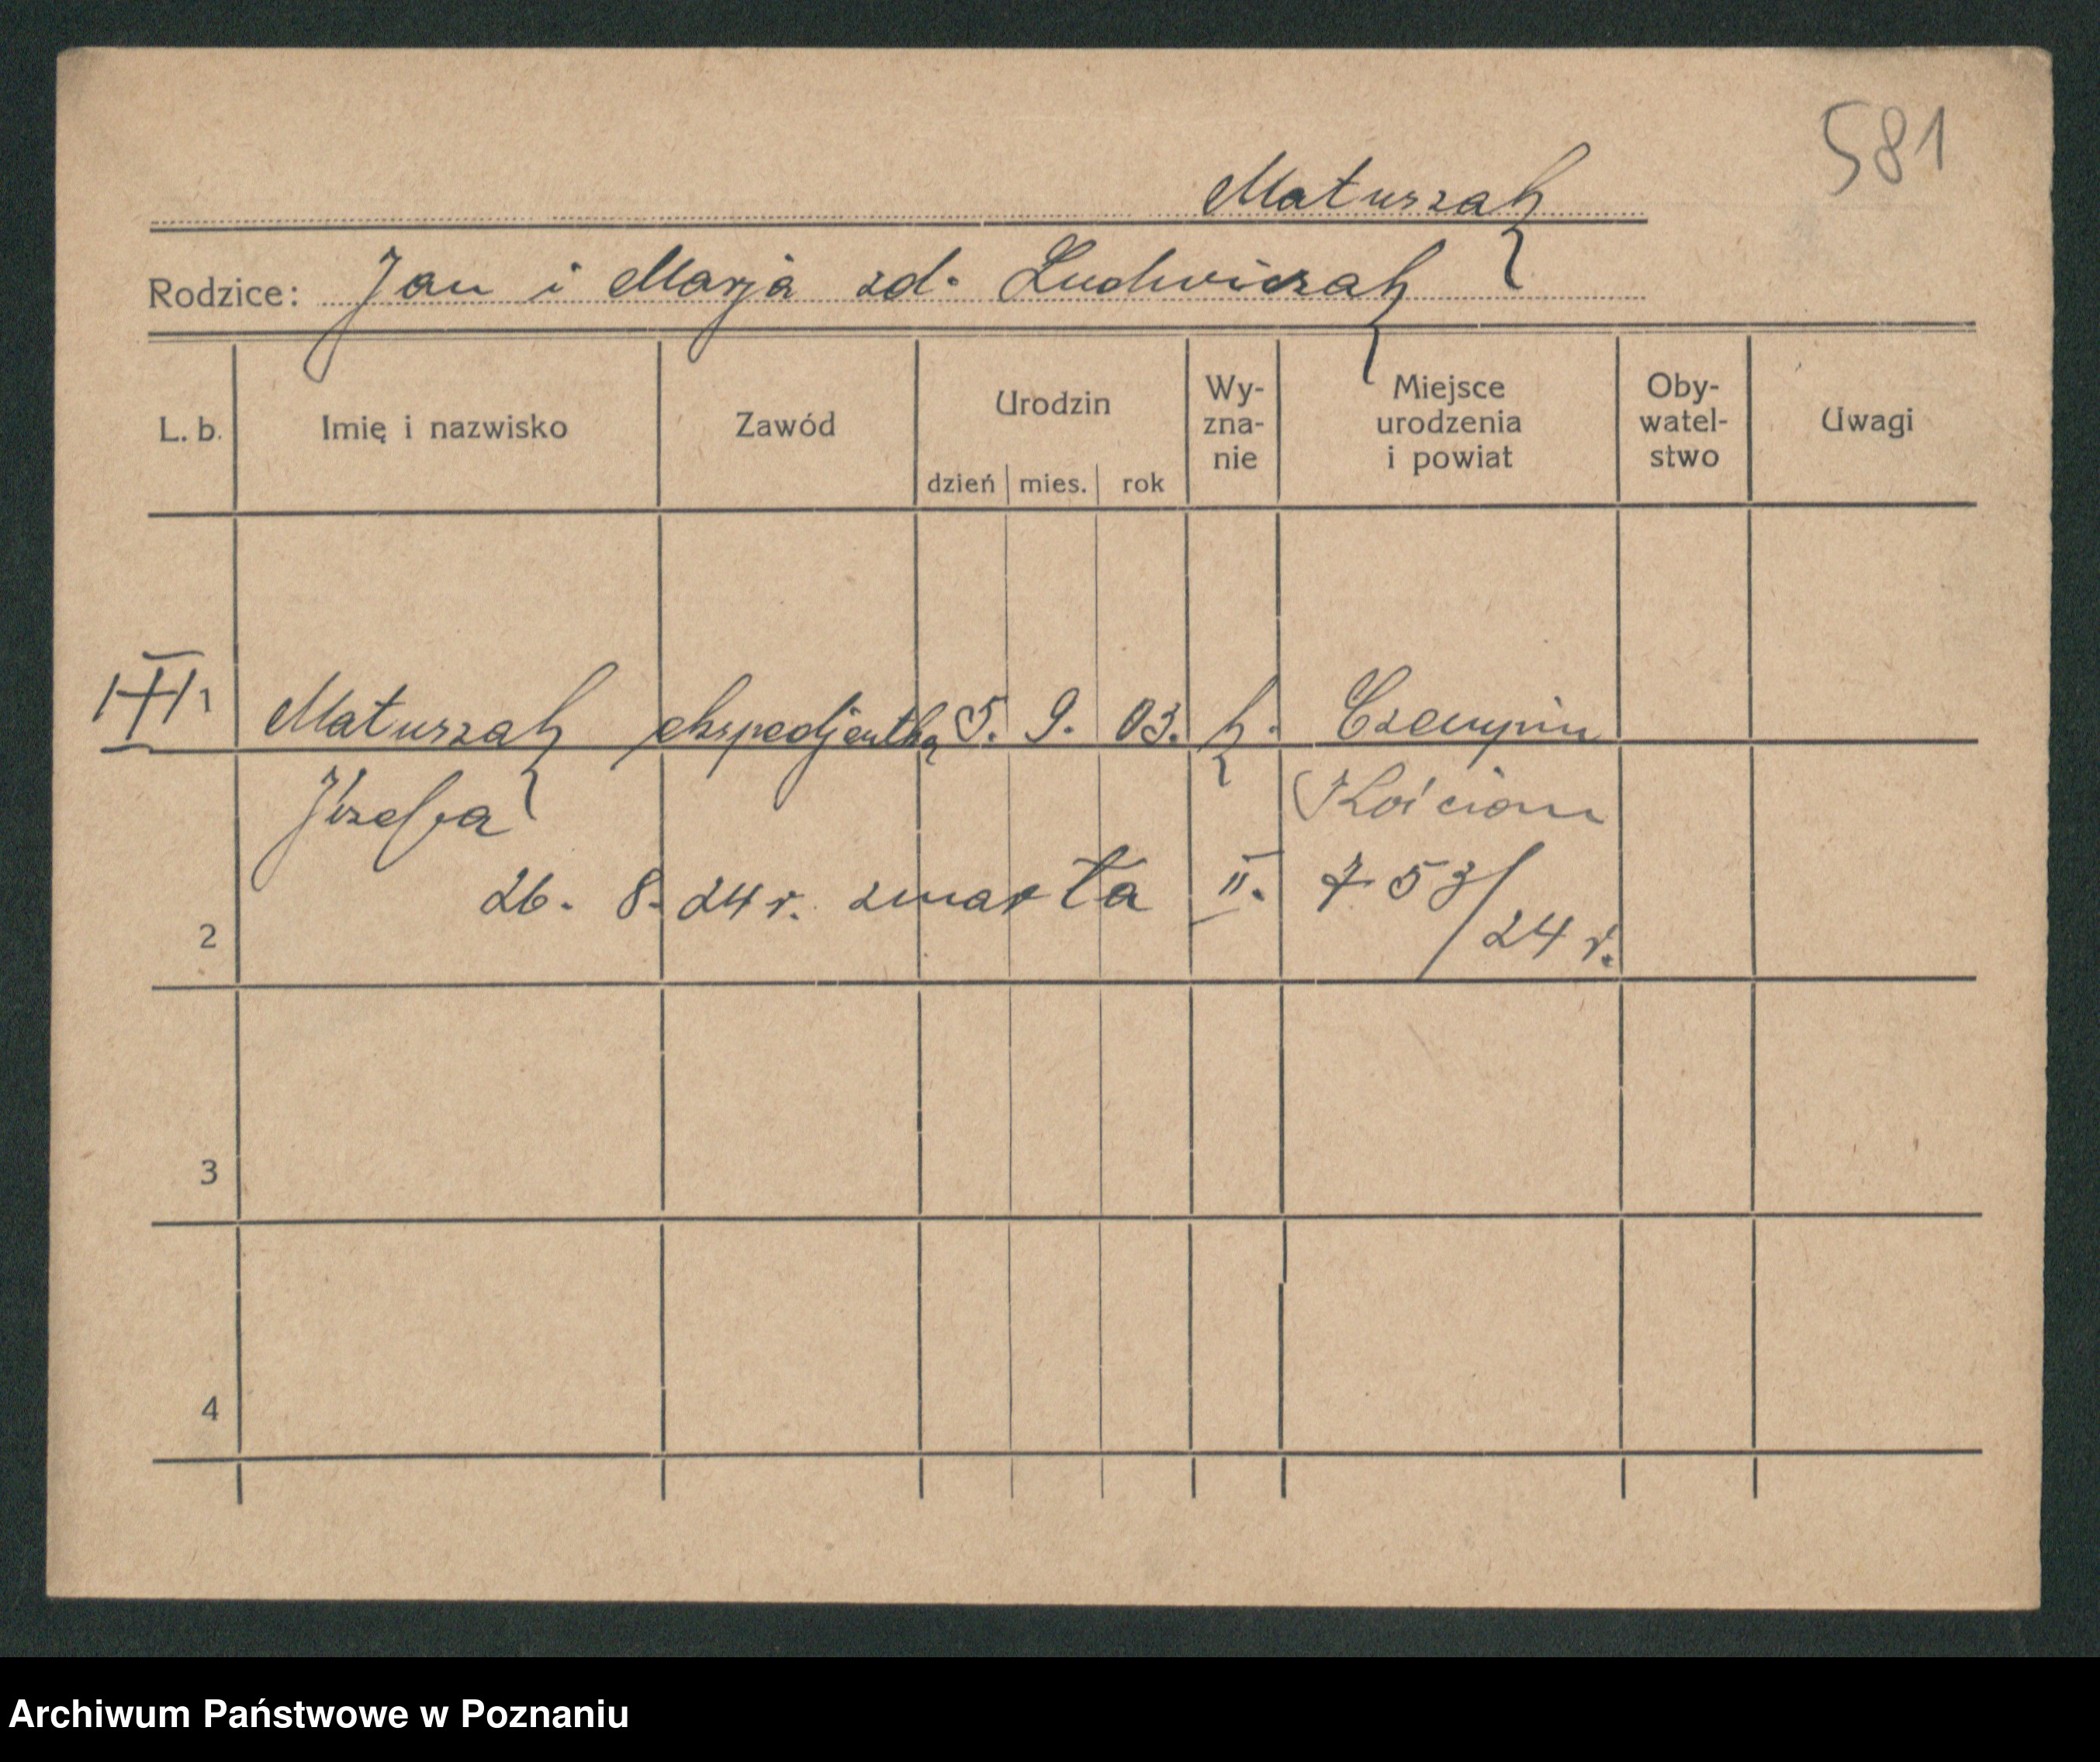 581
Matuszak
Rodzice: Jan i Marja zd. Ludwiczak
L. b.
Imię i nazwisko
Zawód
Urodzin
dzień
mies.
rok
Wy-
zna-
nie
Miejsce
urodzenia
i powiat
Oby-
watel-
stwo
Uwagi
Matuszak ekspedjentka 5. 9. 03. k. Czempiń
Józefa Kościan
26. 8. 24 r. zmarła II. 753/24 r.
2
3
4
Archiwum Państwowe w Poznaniu